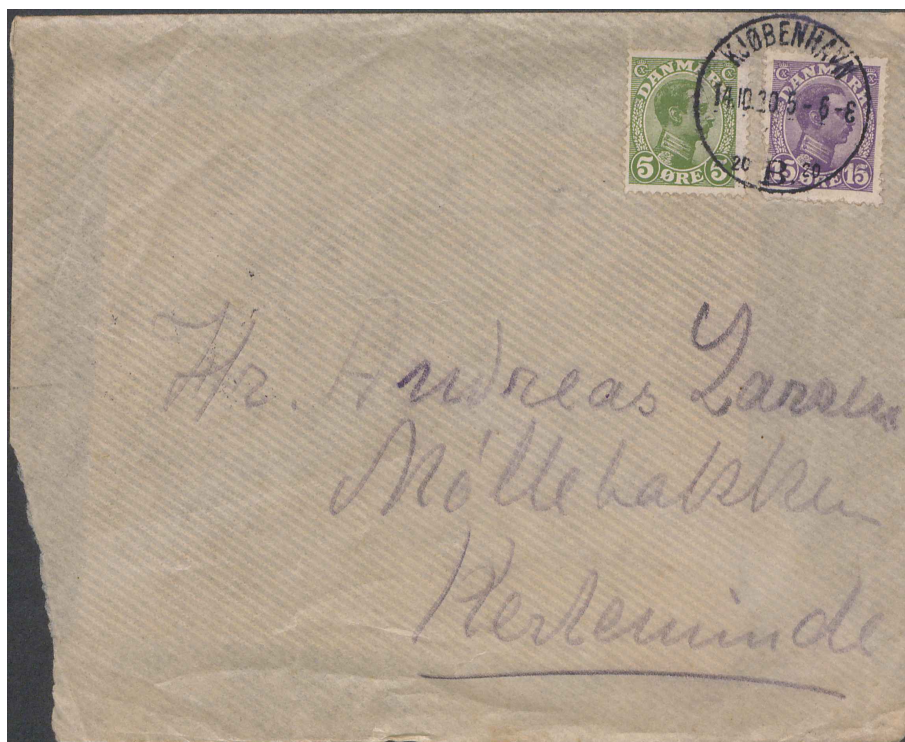 KJØBENHAVN
14.10.20 5-6-E
20 B. 20
DANMARK
5 ØRE 5
DANMARK
15 ØRE 15
Hr. Andreas Larsen
Møllebakken
Kerteminde